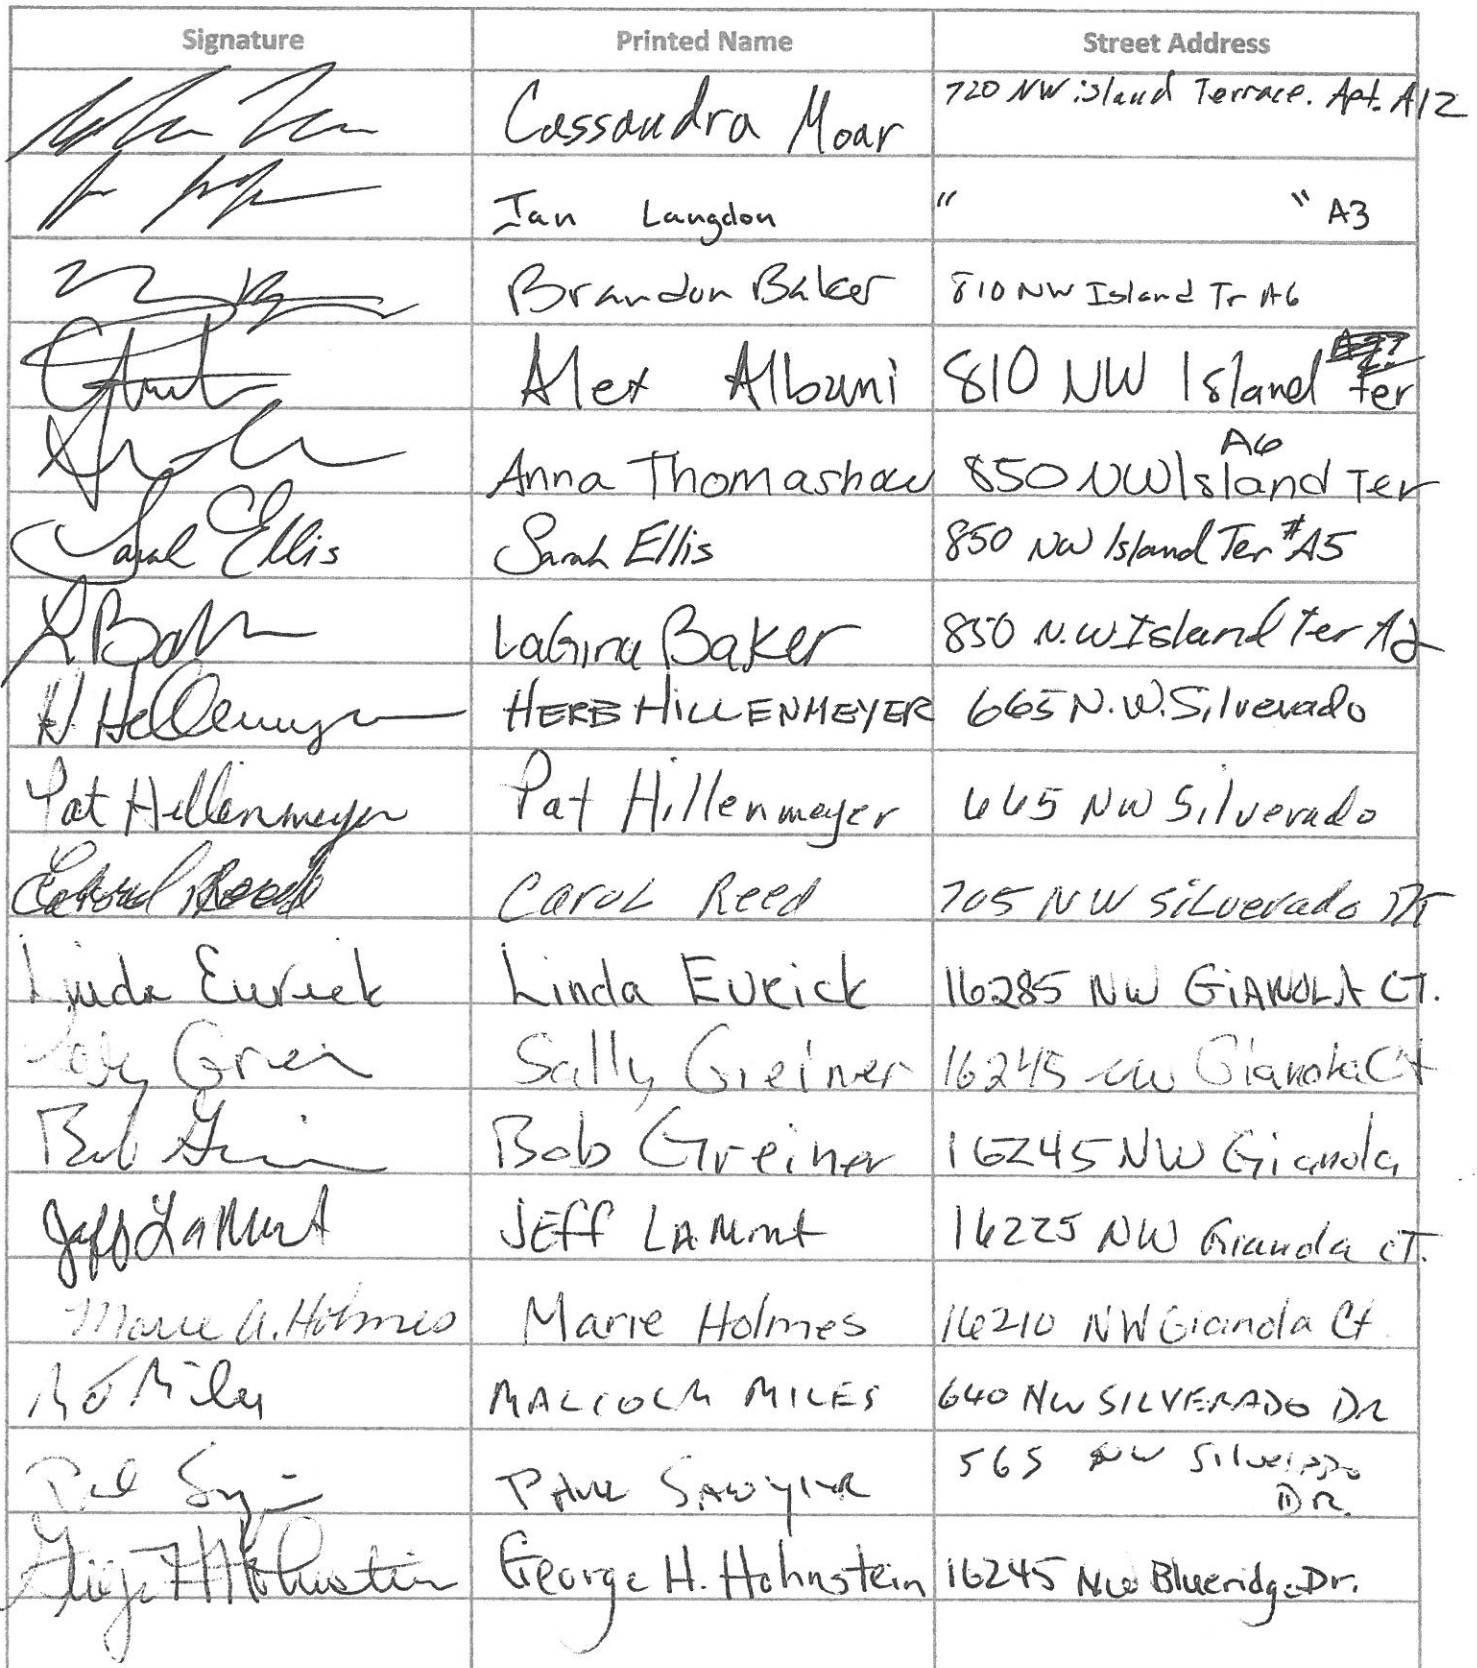 Signature Printed Name Street Address
Cassandra Moar 720 NW island Terrace. Apt. A12
Ian Langdon " " A3
Brandon Baker 810 NW Island Tr A6
Alex Albani 810 NW Island Ter
A6
Anna Thomashow 850 NW Island Ter
Sarah Ellis Sarah Ellis 850 NW Island Ter #A5
L Baker LaGina Baker 850 N.W Island Ter A2
H Hillenmeyer HERB HILLENMEYER 665 N.W. Silverado
Pat Hillenmeyer Pat Hillenmeyer 665 NW Silverado
Carol Reed Carol Reed 705 NW Silverado DR
Linda Eurick Linda Eurick 16285 NW GIANOLA CT.
Sally Greiner Sally Greiner 16245 NW Gianola Ct
Bob Greiner Bob Greiner 16245 NW Gianola
Jeff LaMont JEFF LAMont 16225 NW Gianola CT.
Marie A. Holmes Marie Holmes 16210 NW Gianola Ct
Miles MALCOLM MILES 640 NW SILVERADO DR
Paul PAUL SAWYIER 565 NW Silverado
DR.
George H Hohnstein George H. Hohnstein 16245 NW Blueridge Dr.